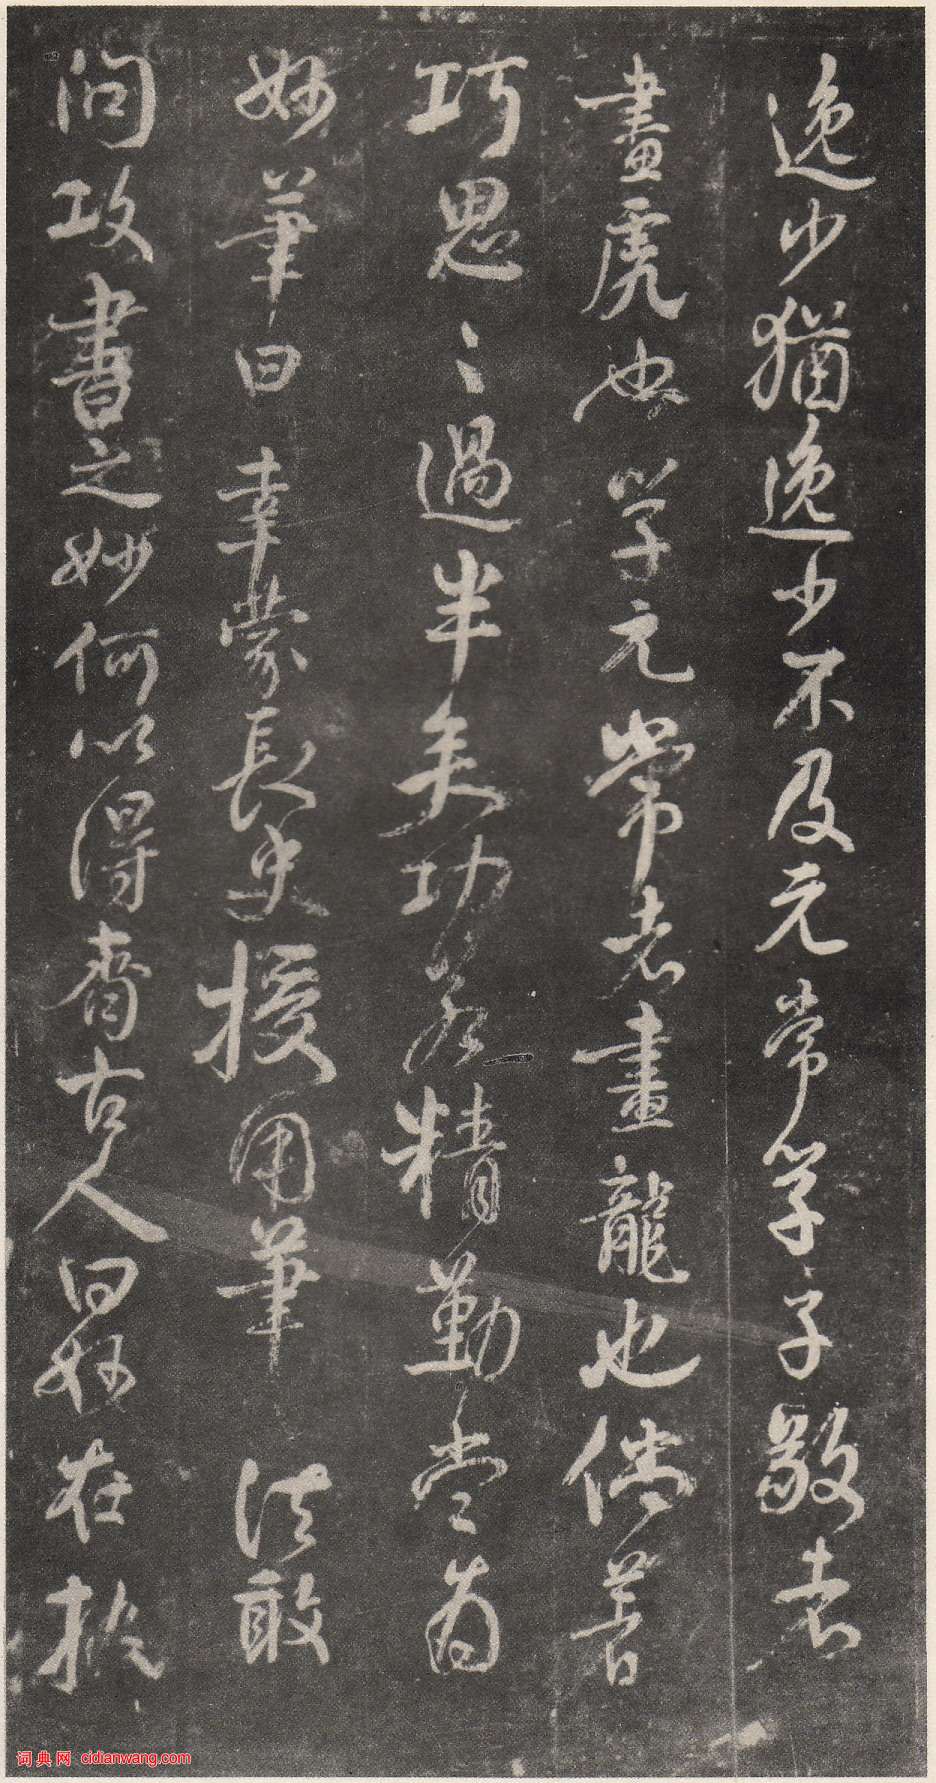 逸少猶逸少不及元常學子敬者
畫虎也學元常者畫龍也儻善
巧思〻過半矣功若精勤當為
妙筆曰幸蒙長史授用筆法敢
問攻書之妙何以得齊古人曰妙在執
词典网 cidianwang.com